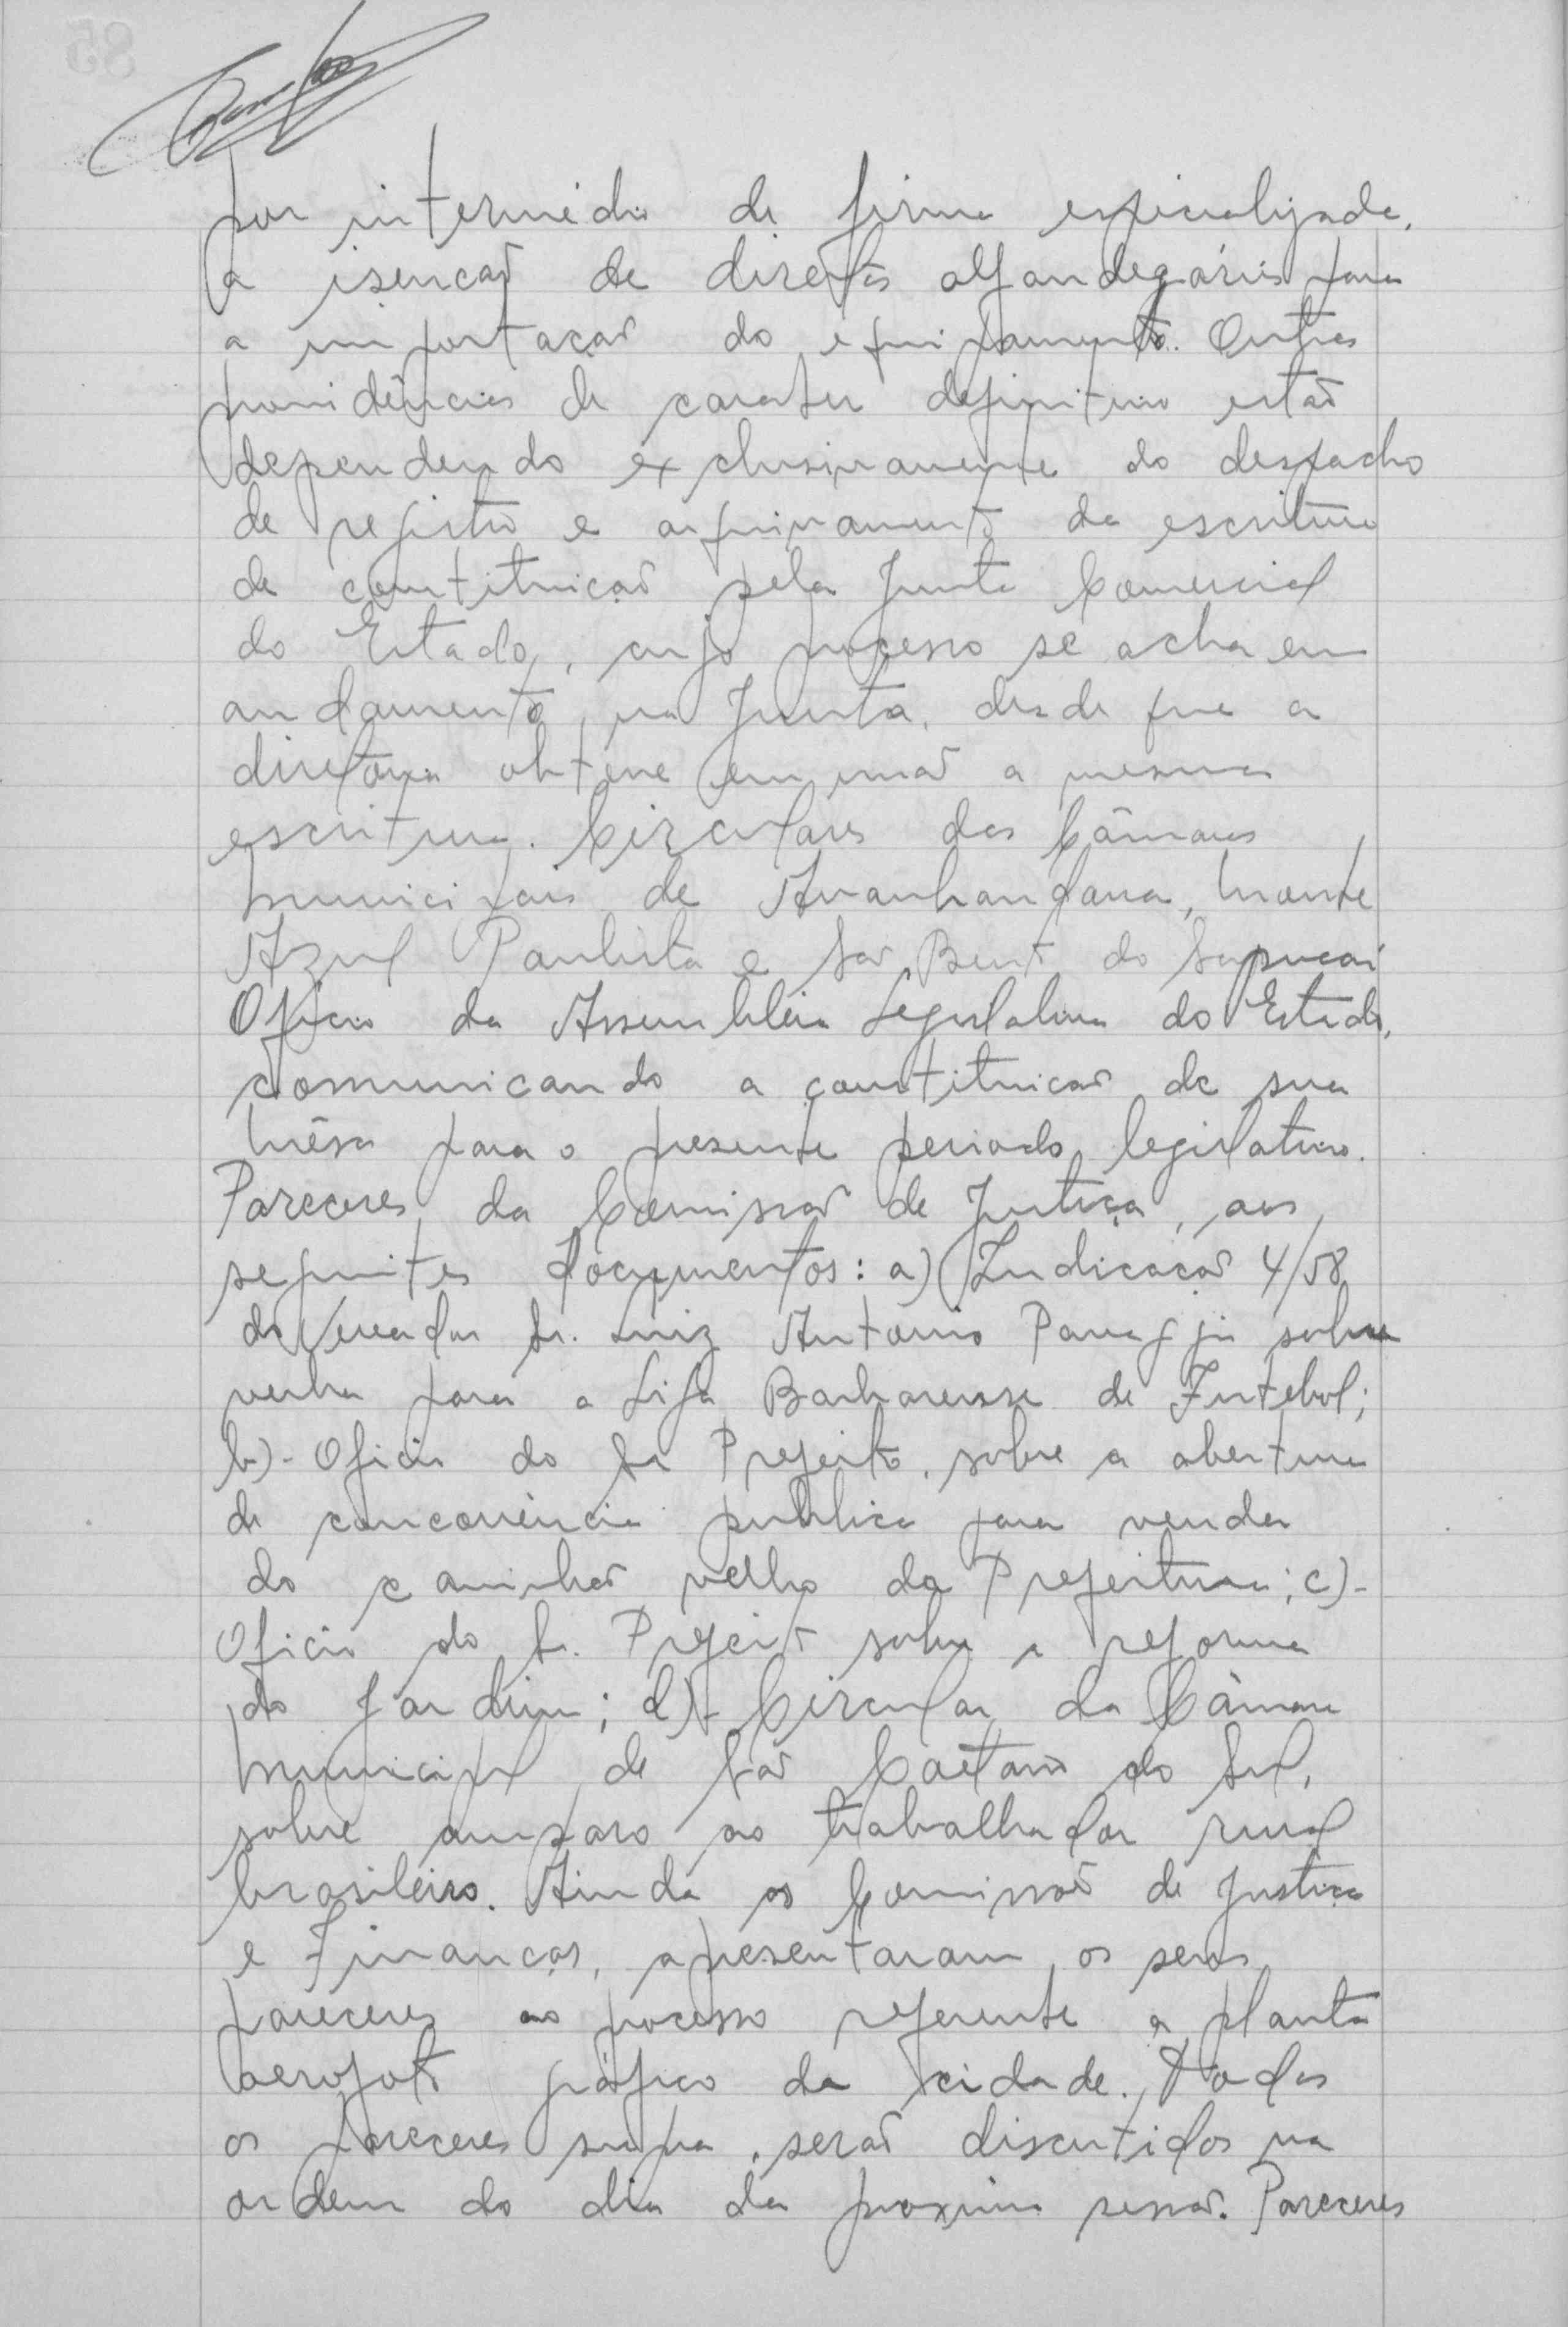 por intermédio de firma especializada,
a isenção de direitos alfandegários para
a importação do equipamento. Outras
providências de carater definitivo estão
dependendo exclusivamente do despacho
de registro e arquivamento da escritura
de constituição pela Junta Comercial
do Estado, cujo processo se acha em
andamento, na Junta, desde que a
diretoria obteve em mão a mesma
escritura. Circulares das Câmaras
Municipais de Avanhandava, Monte
Azul Paulista e São Bento do Sapucaí
Oficio da Assembléia Legislativa do Estado,
comunicando a constituição de sua
Mêsa para o presente periodo legislativo.
Pareceres da Comissão de Justiça, aos
seguintes documentos: a) Indicação 4/58
do Vereador Sr. Luiz Antonio Panaggio sobre
verba para a Liga Barbarense de Futebol;
b)- Oficio do Sr Prefeito, sobre a abertura
de concorrência publica para venda
do caminhão velho da Prefeitura; c)-
Oficio do Sr. Prefeito sobre a reforma
do Jardim; d)- Circular da Câmara
Municipal de São Caetano do Sul,
sobre amparo ao trabalhador rural
brasileiro. Ainda as Comissões de Justiça
e Finanças, apresentaram os seus
pareceres ao processo referente a planta
aerofoto gráfico da cidade. Todos
os pareceres supra, serão discutidos na
ordem do dia da proxima sessão. Pareceres